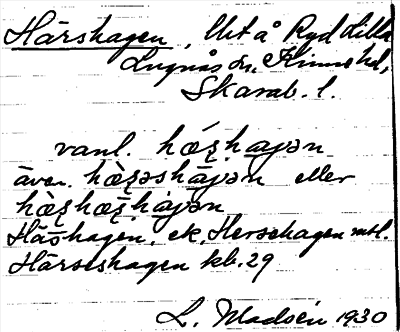 Härshagen, lht å Ryd Lilla
Lugnås sn, Kinne hd,
Skarab. l.
vanl. hæ̀ʂhaɡən
även hæ̀rəshāɡən eller
Häshagen, ek, Hersehagen mtl.
Härseshagen kb. 29
L. Madsén 1930